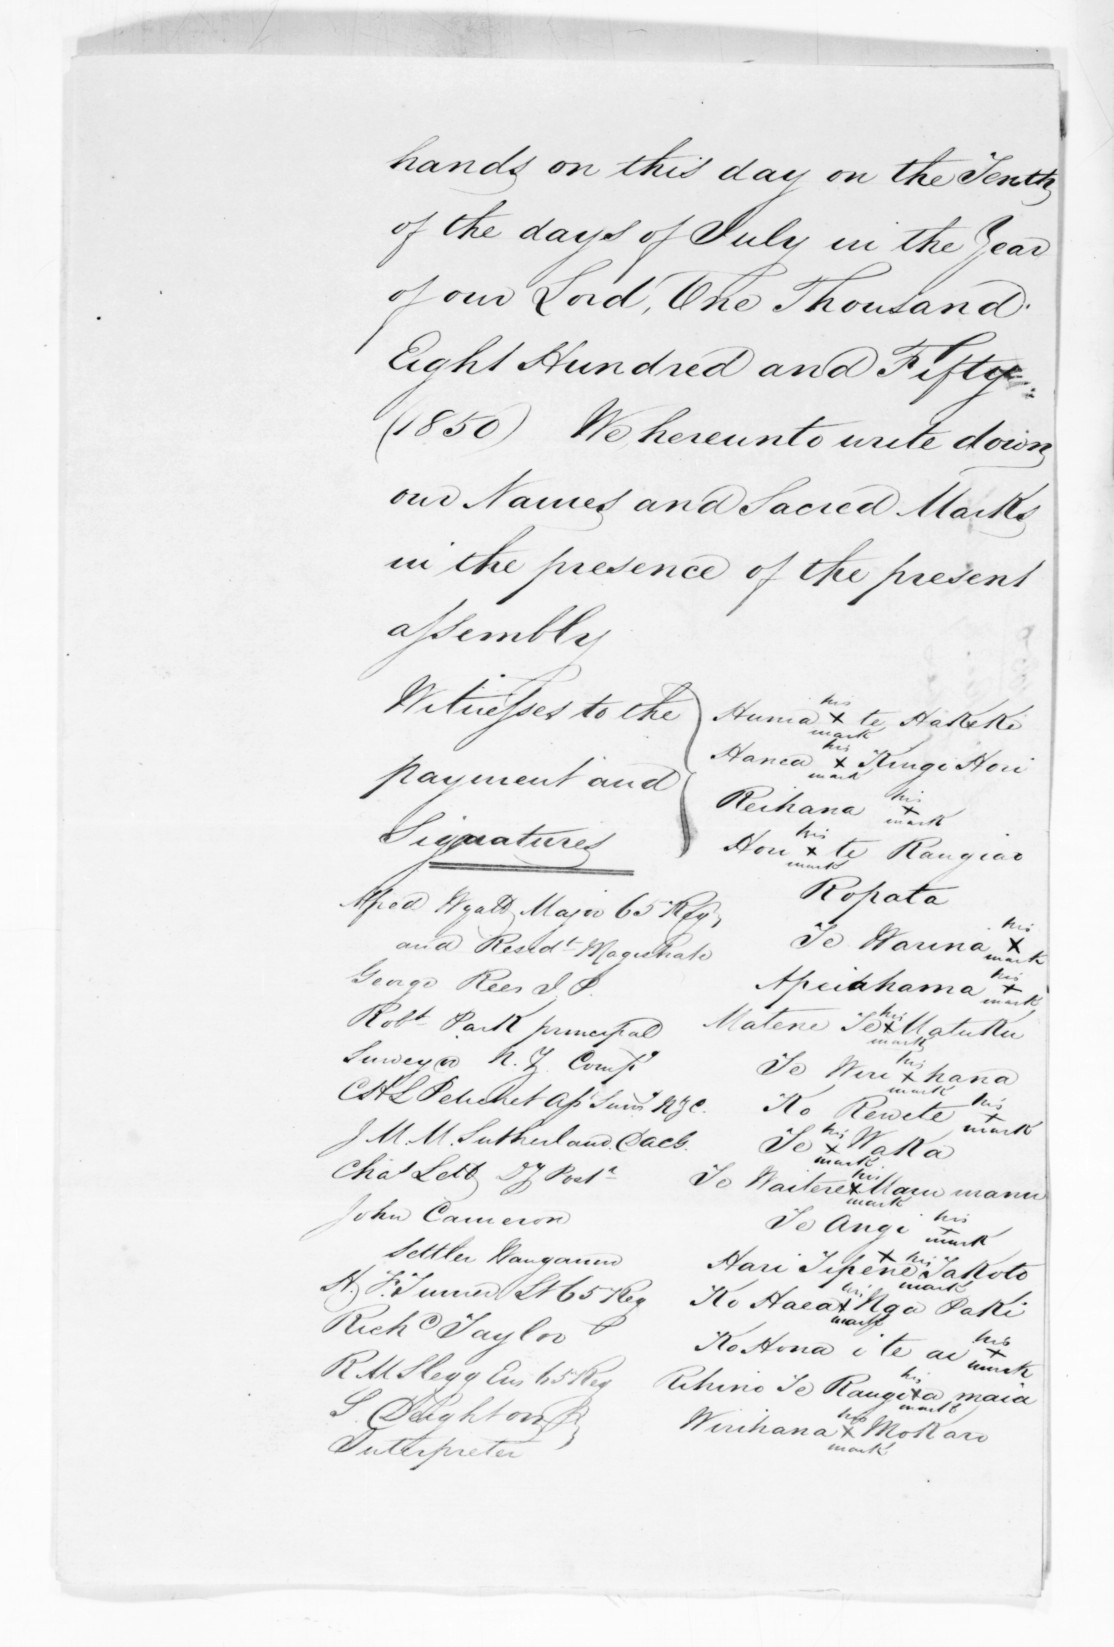 hands on this day on the Tenth
of the days of July in the Year
of our Lord, One Thousand
Eight Hundred and Fifty
(1850) We hereunto write down
our Names and Sacred Marks
in the presence of the present
assembly
Witnesses to the
payment and
Signatures
Alfred Wyatt Major 65 Regt
and Resdt Magistrate
George Rees J. P.
Robt Park principal
Surveyor N. Z. Compy
CHL Petichet Asst Survr NZC.
J M. M. Sutherland
Chas Lett
John Cameron
Settler Wanganui
H. F. Turner Lt 65 Reg
Richd Taylor
R M Slegg Ens 65 Reg
S. Deighton
Interpreter
Hunia his x mark te Hakeke
his x mark Kingi Hori
Reihana his x mark
Hori his x mark te Rangiao
Ropata
Te Warina his x mark
Apeiahama his x mark
Matene Te his x mark Matuku
Te Wiri his x mark hana
Ko Rewete his x mark
Te his x mark Waka
Te Waitere his x mark Maru manu
Te Angi his x mark
Hari Tipene his x mark Takoto
Ko Haea his x mark Nga Paki
Ko Hona i te ai his x mark
Rihino Te Rangi his x mark a maia
Wirihana his x mark Mokaro